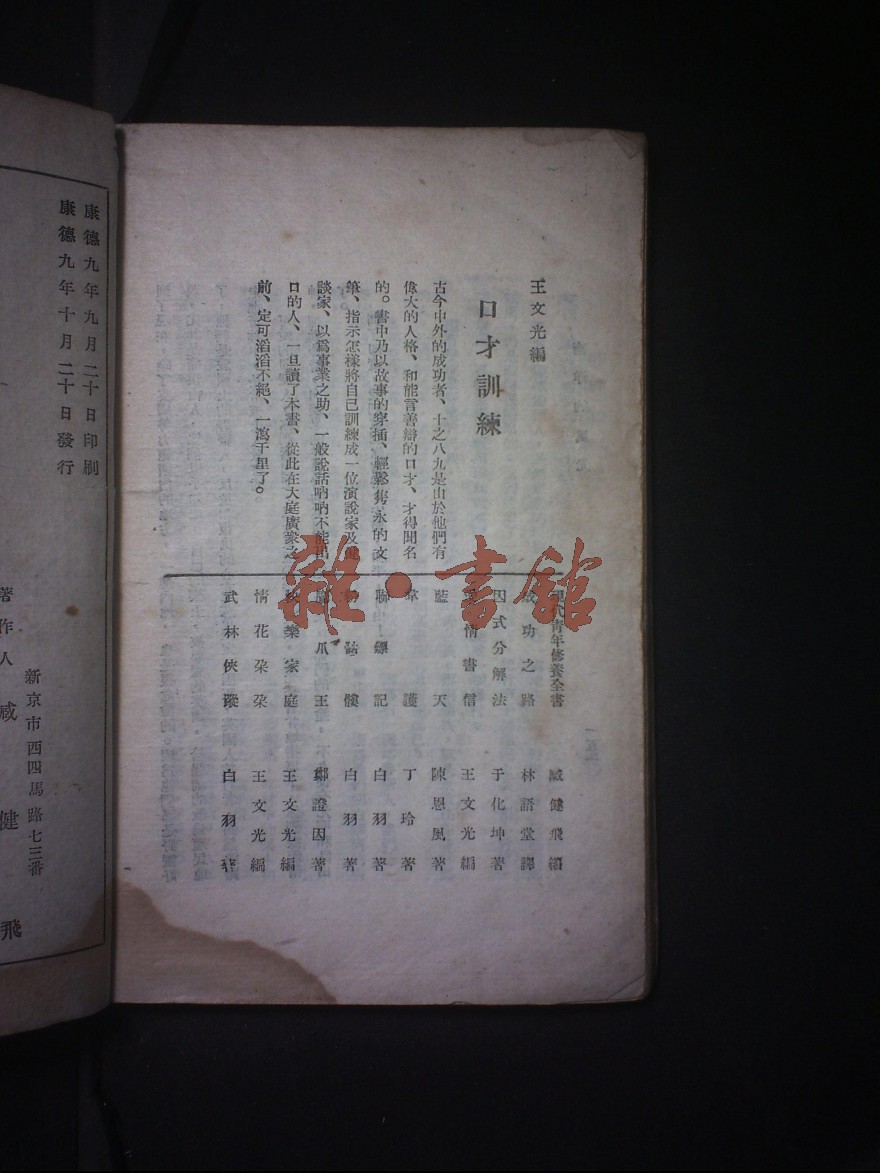 王文光編
口才訓練
古今中外的成功者、十之八九是由於他們有
偉大的人格、和能言善辯的口才、才得聞名
的。書中乃以故事的穿插、輕鬆雋永的文
筆、指示怎樣將自己訓練成一位演說家及健
談家、以爲事業之助、一般說話吶吶不能出
口的人、一旦讀了本書、從此在大庭廣衆之
前、定可滔滔不絕、一瀉千里了。
現代青年修養全書 臧健飛編
成功之路 林語堂譯
因式分解法 于化坤著
情書信 王文光編
藍天 陳恩風著
韋護 丁玲著
聯鏢記 白羽著
骷髏 白羽著
鷹爪王 鄭證因著
快樂家庭 王文光編
情花朶朶 王文光編
武林俠蹤 白羽著
康德九年九月二十日印刷
康德九年十月二十日發行
新京市西四馬路七三番
著作人 臧健飛
雜·書館